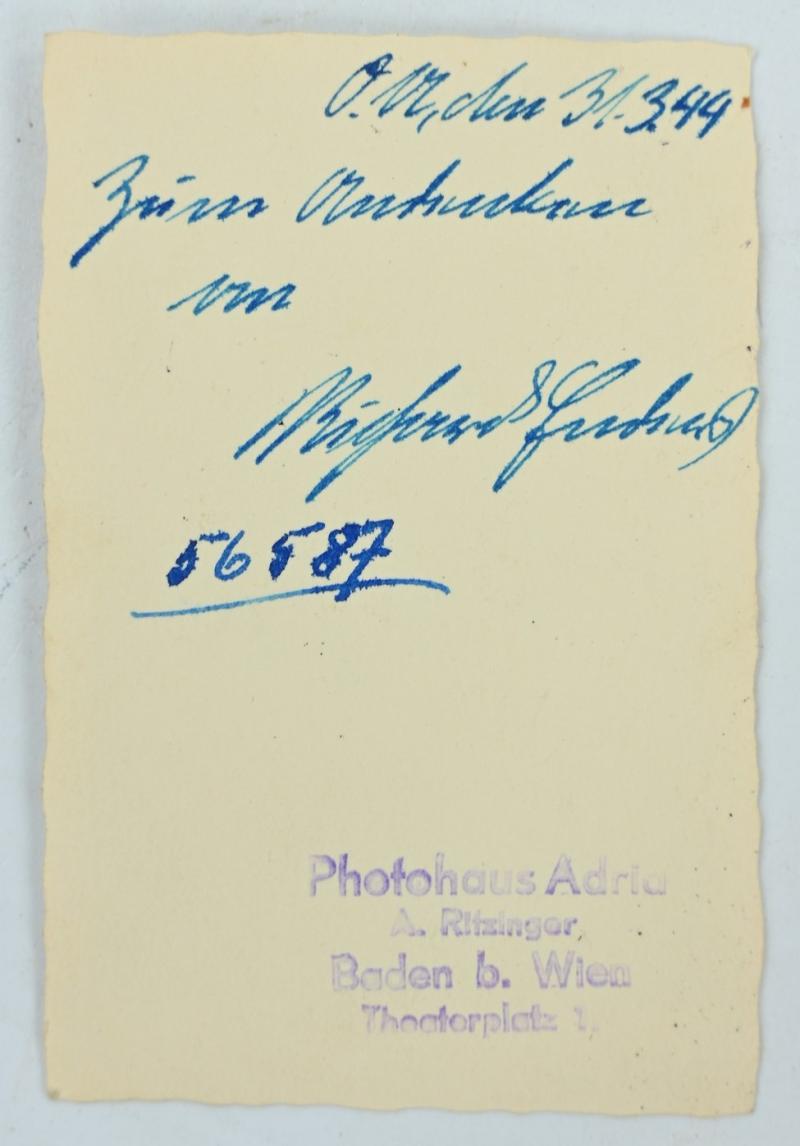 O.U, den 31.3.44
Zum Andenken
von
56587
Photohaus Adria
A. Ritzinger
Baden b. Wien
Theaterplatz 1.